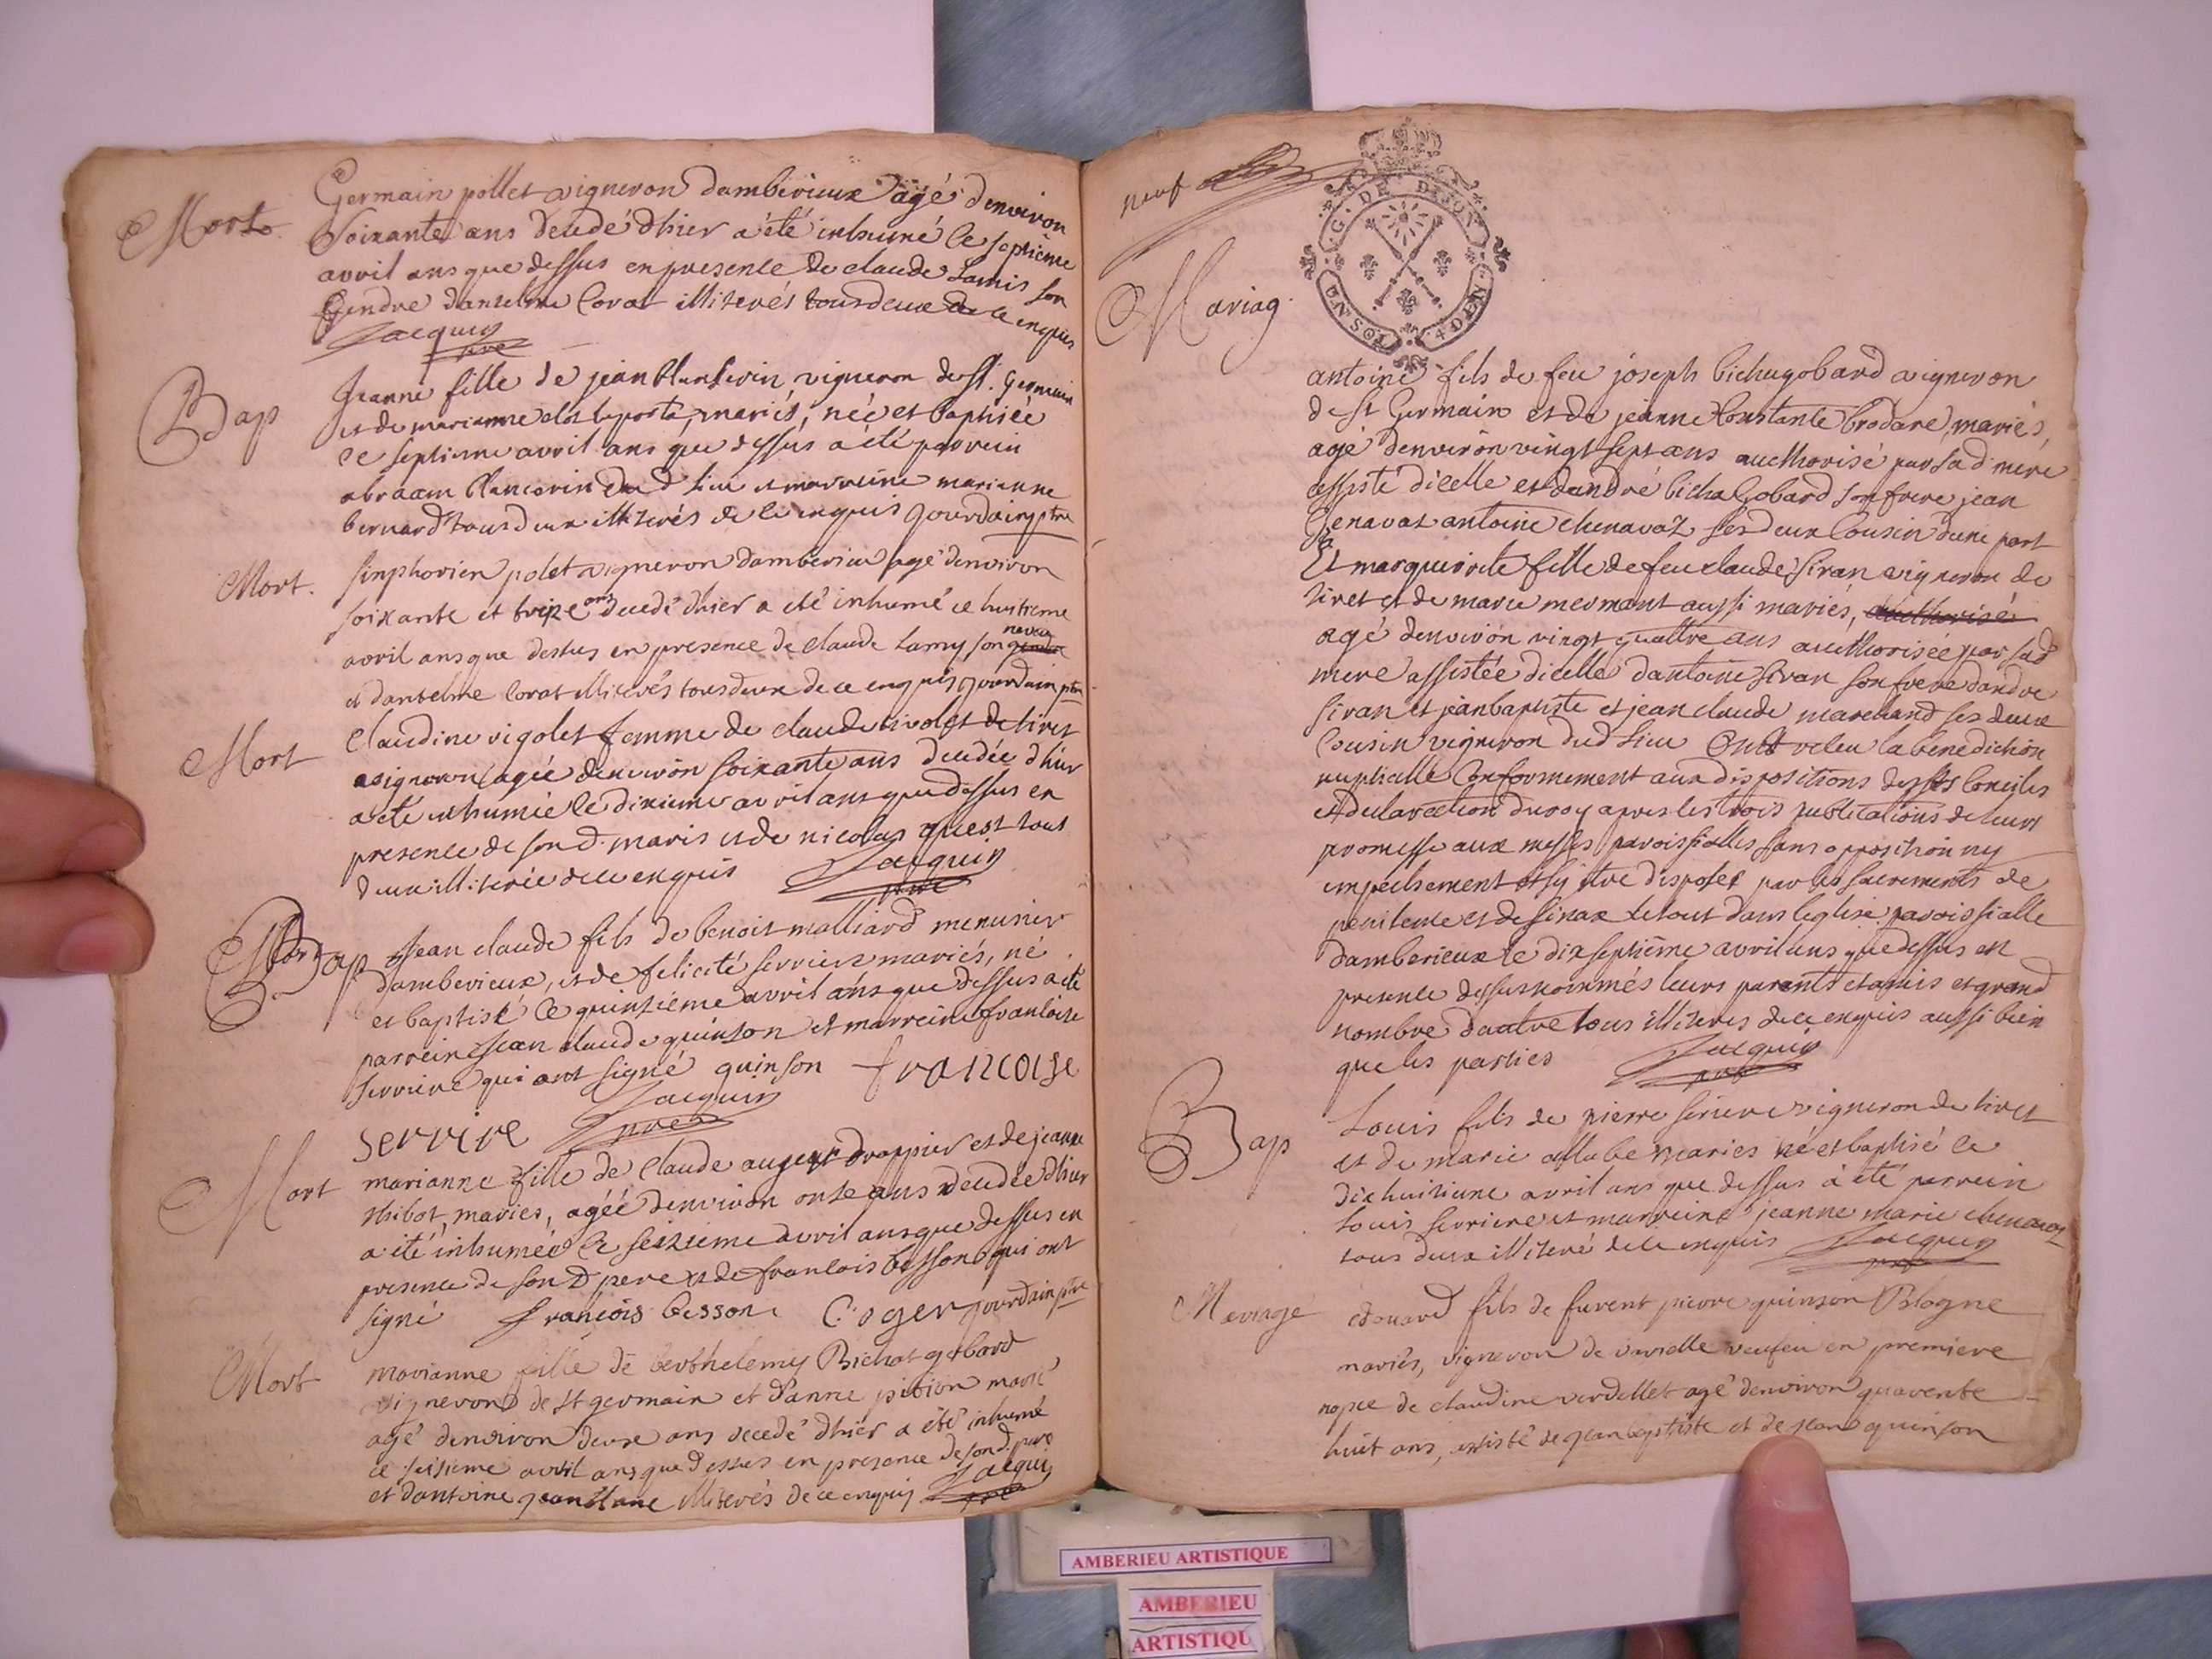 Mort
Germain pollet vigneron damberieux agé denviron
Soixante ans decedé dhier a été inhumé le septieme
avril ans que dessus en presence de claude Lamis son
Gendre danselme Corat illiterés tous deux de ce enquis
Jacquin
ptre
Bap
Jeanne fille de jean blanchevin vigneron de st. Germain
et de marianne mariés, née et baptisée
le septieme avril ans que dessus a été parrein
abraam dud lieu et marreine marianne
bernard tous deux illiterés de ce enquis Jourdain ptre
Mort.
sinphorien polet vigneron damberieu agé denviron
soixante et treize ans decedé dhier a été inhumé ce huitieme
avril ans que dessus en presence de claude Lamy son neveu
et danselme Corat illiterés tous deux de ce enquis Jourdain ptre
Mort
Claudine vigolet femme de claude de tiret
vigneron agée denviron soixante ans decedée dhier
a eté inhumée le dixieme avril ans que dessus en
presence de son d. maris et de nicolas tout
deux illiterée de ce enquis Jacquin
ptre
Bap
Jean claude fils de benoit malliard menusier
damberieux, et de felicité serriere mariés, né
et baptisé le quinzieme avril ans que dessus a eté
parrein Jean claude quinson et marreine francoise
serriere qui ont signé quinson francoise
Jacquin
servire ptre
Mort
marianne fille de Claude drappier et de jeanne
thibot, mariés, agéé denviron onze ans decedée dhier
a été inhumée le seizieme avril ans que dessus en
presence de son d pere et de francois besson qui ont
signé francois besson C: oger jourdain ptre
Mort
marianne fille de berthelemy Bichat gobard
vigneron de st germain et danne pition marié
agé denviron deuxe ans decedé dhier a été inhumé
ce seisieme avril ans que dessus en presence de son d. pere
et dantoine illiterés de ce enquis Jacquin
ptre
neuf
G. DE DIJON
UN SOL 4 DEN
Mariag.
antoine fils de feu joseph bichagobard vigneron
de st Germain et de jeanne Constante brodare, mariés,
agé denviron vingt sept ans aucthorisé par sa d mere
assisté dicelle et dandré bichatgobard son frere jean
Genavat antoine chenavaz ses deux Cousin dune part
Et marguerite fille de feu claude siran vigneron de
tiret et de marie mermant aussi mariés, aucthorisé
agé denviron vingt quattre ans aucthorisée par sa d
mere assistée dicelle dantoine siran son frere dandre
siran et jean baptiste et jean claude marchand ses deux
Cousin vigneron dud lieu Ont receu la benediction
nuptialle Conformement aux dispositions des sts Conciles
et declaration du roy apres les trois publications de leurs
promesse aux messes paroissialles sans opposition ny
impechement et sy etre disposés par les sacrements de
penitence et de le tout dans leglise paroissialle
damberieux le dix septieme avril ans que dessus en
presence dessus nommés leurs parents et amis et grand
nombre dautre tous illiteres de ce enquis aussi bien
que les parties Jacquin
ptre
Bap
Louis fils de pierre seriere vigneron de tiret
et de marie mariés né et baptisé le
dix huitieme avril ans que dessus à été parrein
Louis serriere et marreine jeanne marie chenavaz
tous deux illiteré de ce enquis Jacquin
ptre
Meriage
edouard fils de furent pierre quinson Blogne
mariés, vigneron de vareille veufeu en premiere
nopce de claudine verdellet agé denviron quarente
huit ans, assisté de jean baptiste et de jean quinson
AMBERIEU ARTISTIQUE
AMBERIEU
ARTISTIQU